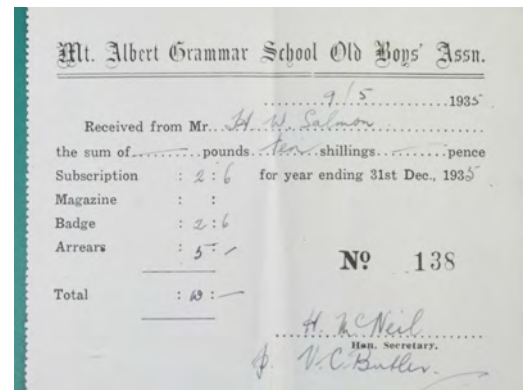 Mt. Albert Grammar School Old Boys' Assn.
9/5 1935
Received from Mr. H. W. Salmon
the sum of — pounds ten shillings — pence
Subscription : 2 : 6 for year ending 31st Dec., 1935
Magazine : :
Badge : 2 : 6
Arrears : 5 : -
Nº 138
Total : 10 : —
H. McNeil
Hon. Secretary.
p. V. C. Butler.